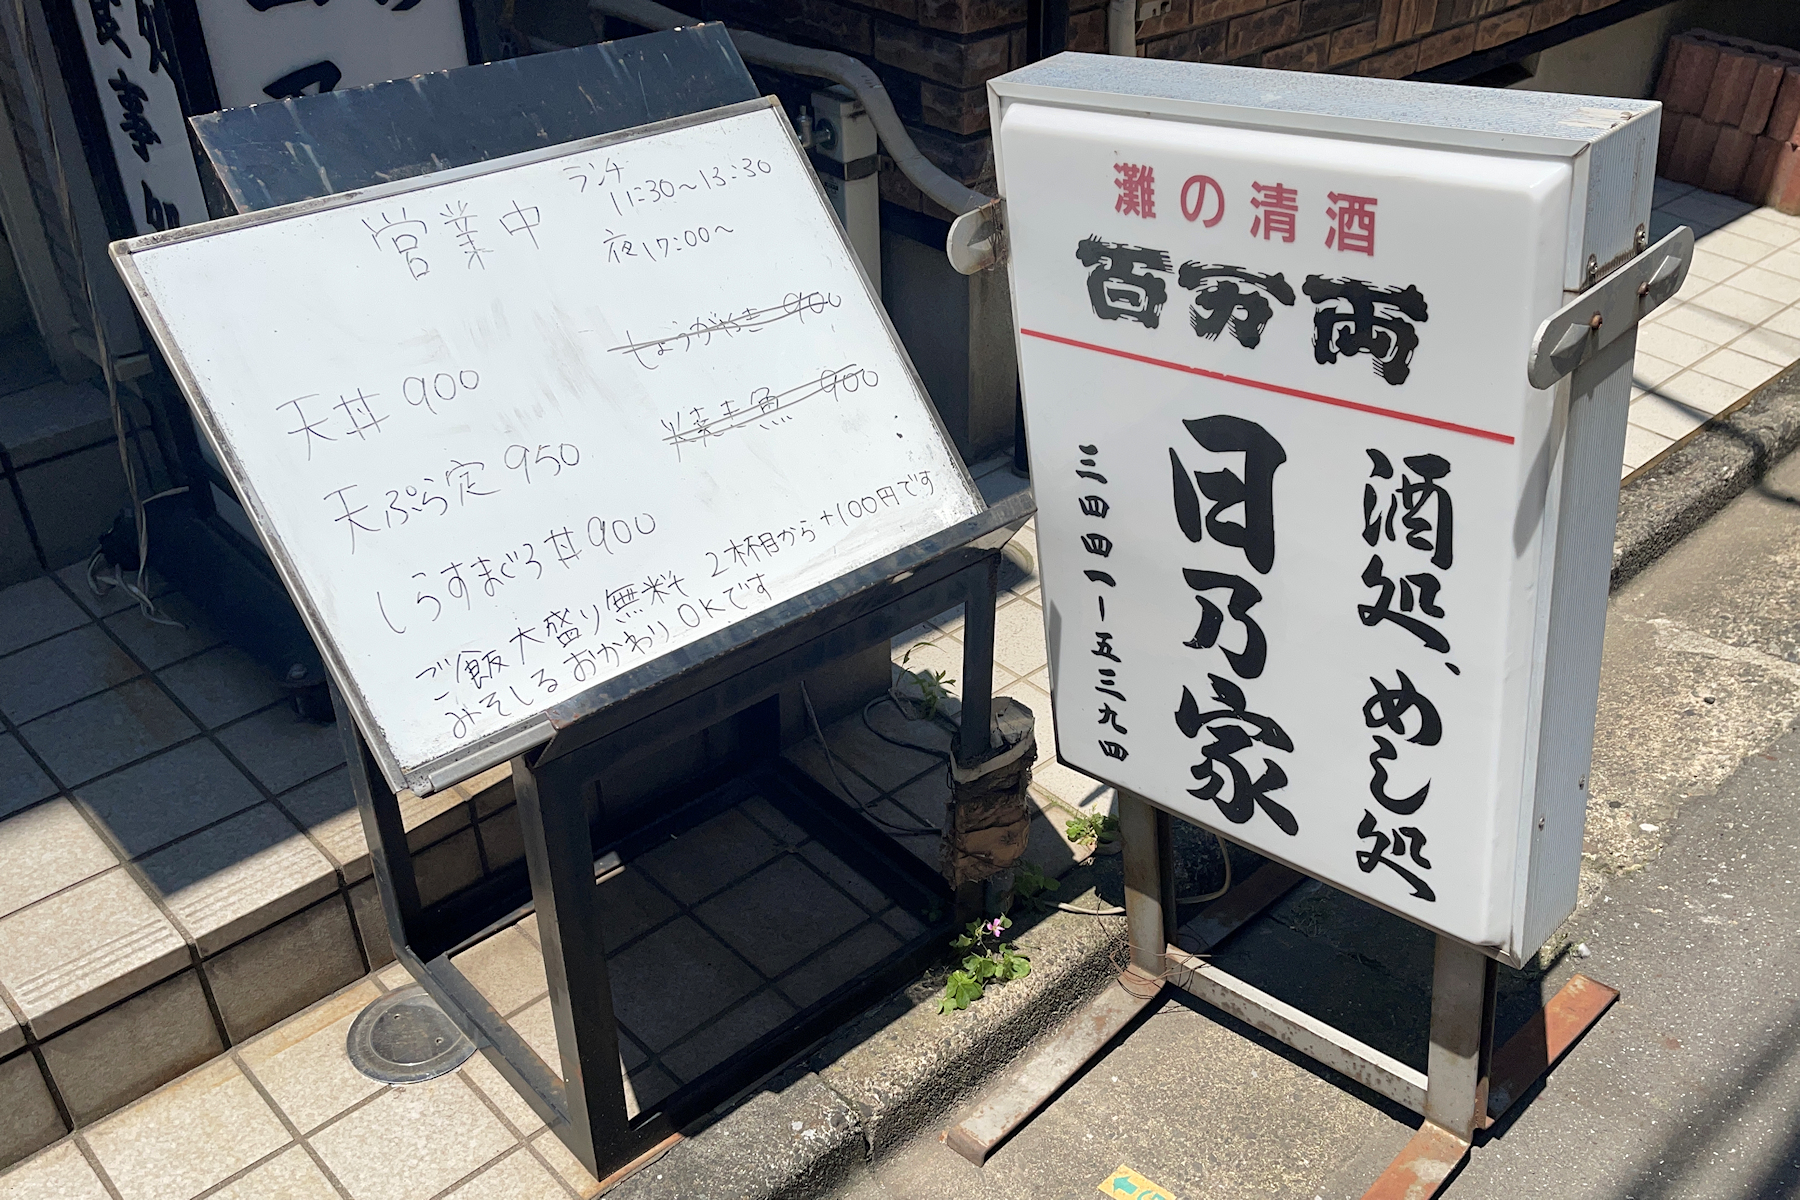 営業中
ランチ
11:30〜13:30
夜17:00〜
しょうがやき 900
焼き魚 900
天丼 900
天ぷら定 950
しらすまぐろ丼 900
ご飯大盛り無料 2杯目から+100円です
みそしるおかわりOKです
灘の清酒
百万両
酒処、めし処
日乃家
三四四一-五三九四
食事処
処